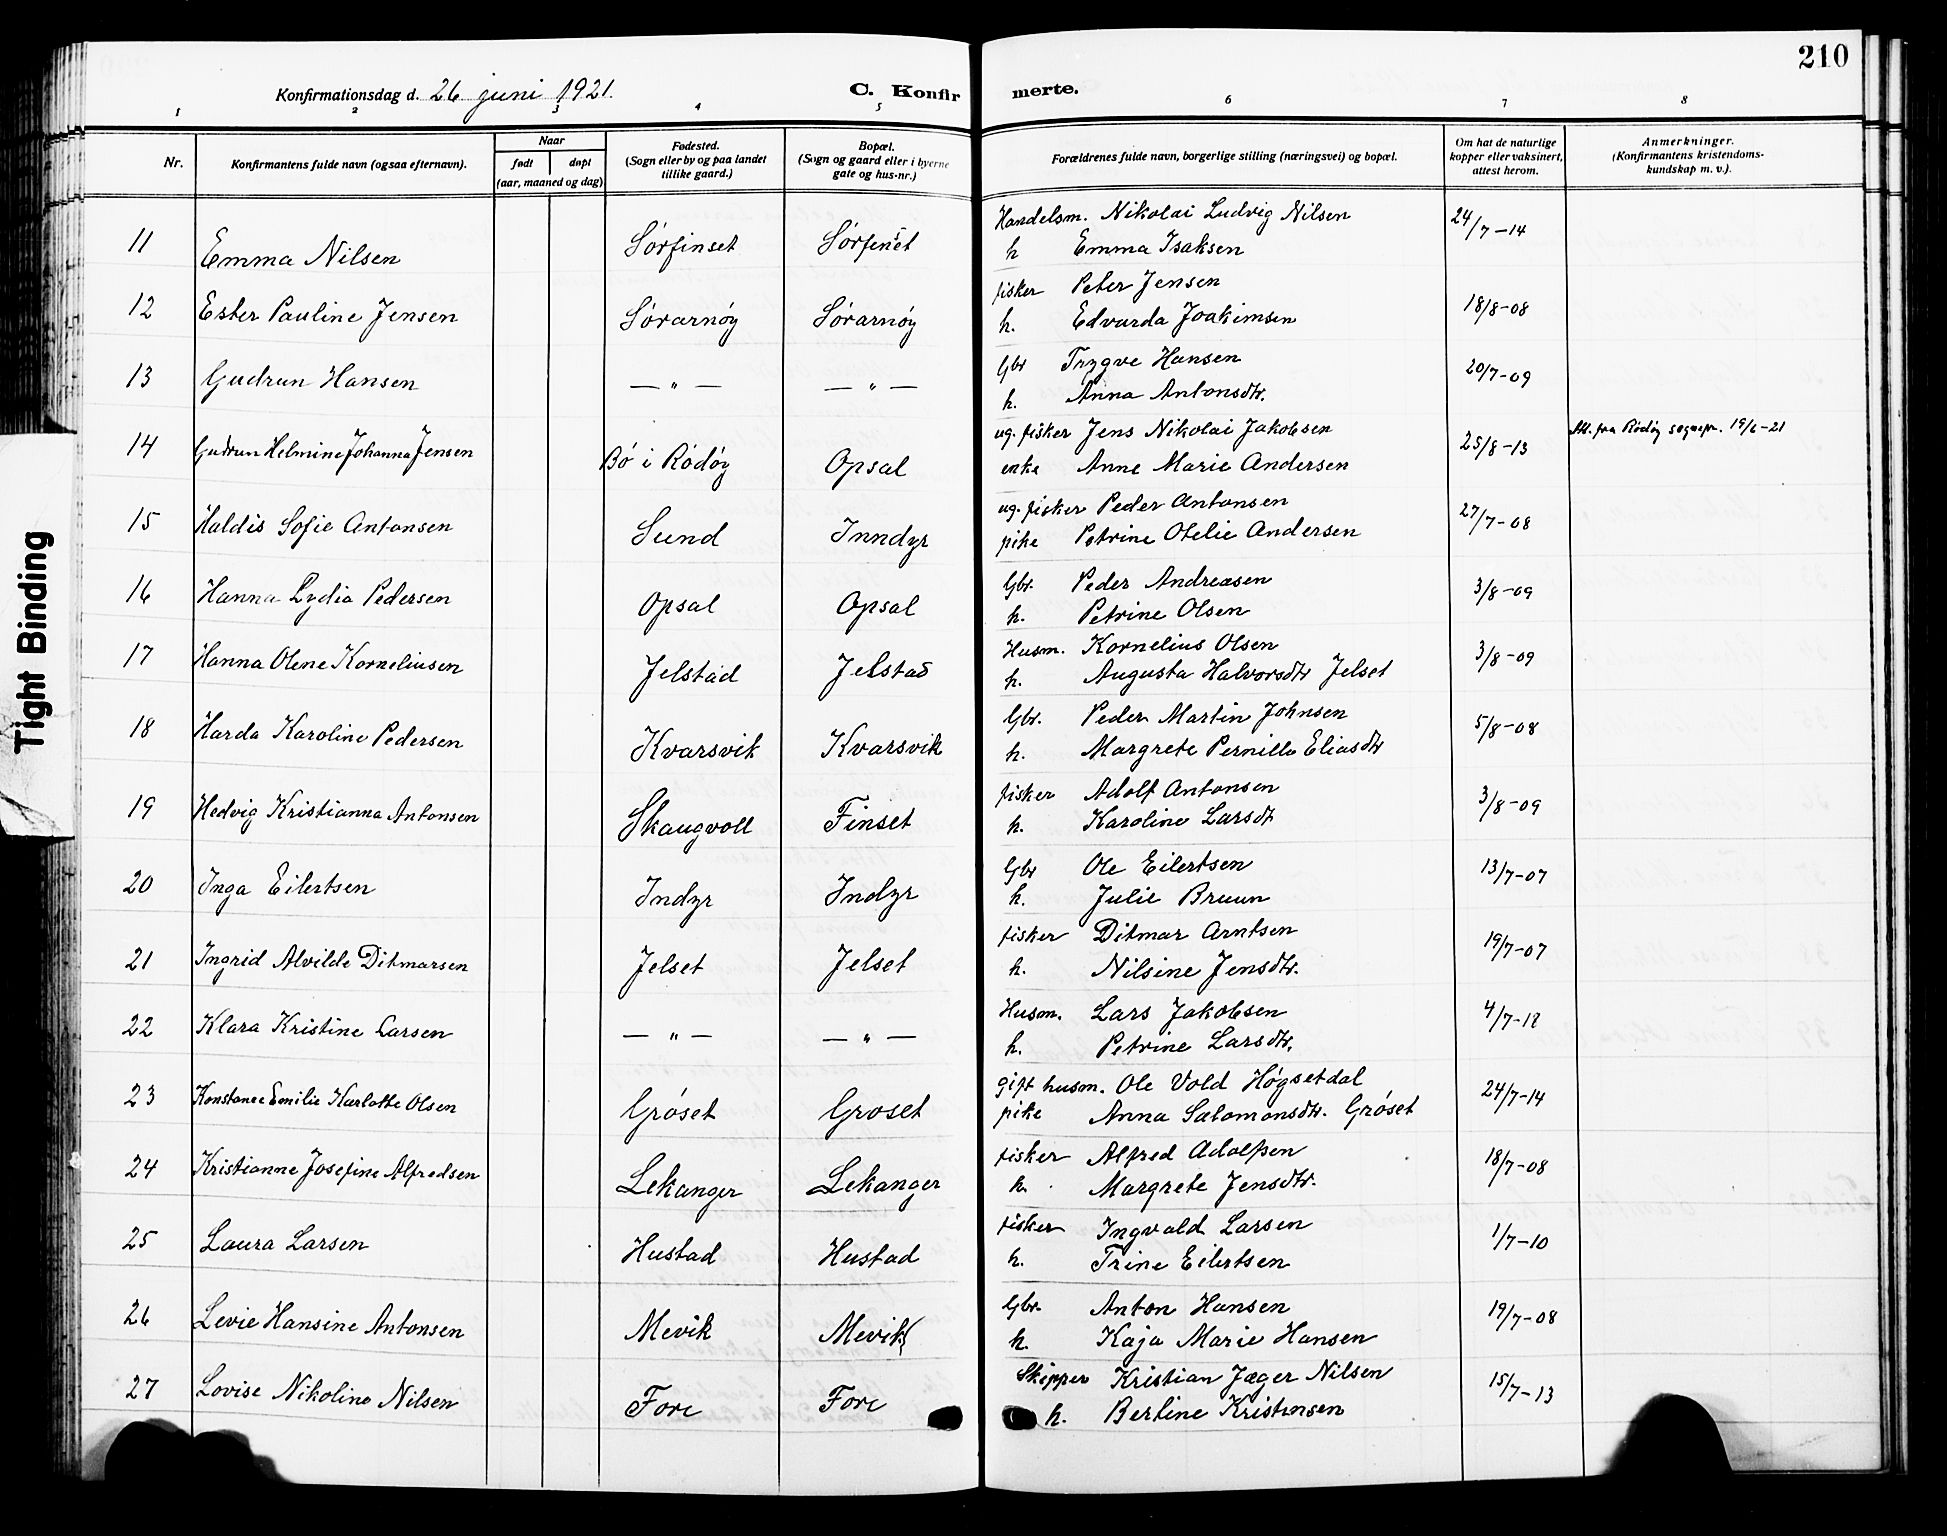 210
Konfirmationsdag d. 26 juni 1921.
C. Konfirmerte.
1 2 3 4 5 6 7 8
Nr.
Konfirmantens fulde navn (ogsaa efternavn).
Naar
født døpt
(aar, maaned og dag)
Fødested.
(Sogn eller by og paa landet
tillike gaard.)
Bopæl.
(Sogn og gaard eller i byerne
gate og hus-nr.)
Forældrenes fulde navn, borgerlige stilling (næringsvei) og bopæl.
Om hat de naturlige
kopper eller vaksinert,
attest herom.
Anmerkninger.
(Konfirmantens kristendoms-
kundskap m. v.).
11 Emma Nilsen Sørfinset Sørfinset Handelsm. Nikolai Ludvig Nilsen 24/7-14
h Emma Isaksen
12 Ester Pauline Jensen Sørarnøy Sørarnøy fisker Peter Jensen 18/8-08
h. Edvarda Joakimsen
13 Gudrun Hansen — " — — " — Gbr Trygve Hansen 20/7-09
h. Anna Antonsdtr.
14 Gudrun Helmine Johanna Jensen Bø i Rødøy Opsal ug. fisker Jens Nikolai Jakobsen 25/8-13 Att. fra Rødøy sognepr. 19/6-21
enke Anne Marie Andersen
15 Haldis Sofie Antonsen Sund Inndyr ug. fisker Peder Antonsen 27/7-08
pike Petrine Otelie Andersen
16 Hanna Lydia Pedersen Opsal Opsal Gbr. Peder Andreasen 3/8-09
h. Petrine Olsen
17 Hanna Olene Korneliusen Jelstad Jelstad Husm. Kornelius Olsen 3/8-09
h. Augusta Halvorsdtr Jelset
18 Harda Karoline Pedersen Kvarsvik Kvarsvik Gbr. Peder Martin Johnsen 5/8-08
h. Margrete Pernille Eliasdtr
19 Hedvig Kristianna Antonsen Skaugvoll Finset fisker Adolf Antonsen 3/8-09
h. Karoline Larsdt
20 Inga Eilertsen Indyr Indyr Gbr Ole Eilertsen 13/7-07
h. Julie Bruun
21 Ingrid Alvilde Ditmarsen Jelset Jelset fisker Ditmar Arntsen 19/7-07
h. Nilsine Jensdtr.
22 Klara Kristine Larsen — " — — " — Husm. Lars Jakobsen 4/7-12
h. Petrine Larsdtr.
23 Konstance Emilie Karlotte Olsen Grøset Grøset gift husm. Ole Vold Høgsetdal 24/7-14
pike Anna Salomonsdtr. Grøset
24 Kristianne Josefine Alfredsen Lekanger Lekanger fisker Alfred Adolfsen 18/7-08
h. Margrete Jensdtr.
25 Laura Larsen Hustad Hustad fisker Ingvald Larsen 1/7-10
h. Trine Eilertsen
26 Levie Hansine Antonsen Mevik Mevik Gbr. Anton Hansen 19/7-08
h. Kaja Marie Hansen
27 Lovise Nikoline Nilsen Fore Fore Skipper Kristian Jæger Nilsen 15/7-13
h. Berline Kristensen
Tight Binding